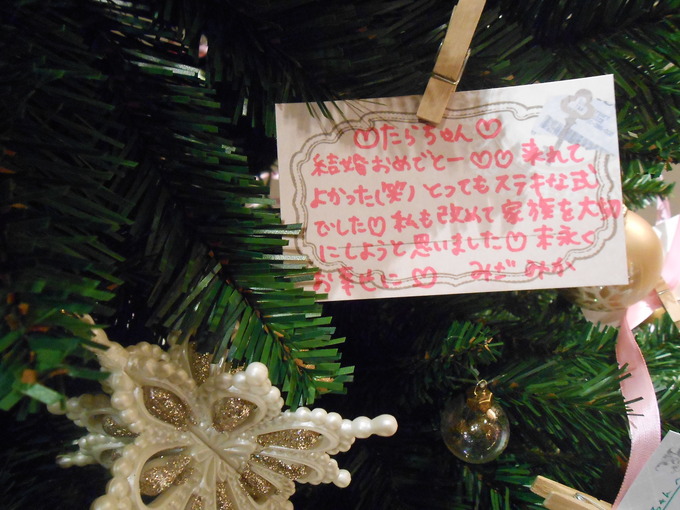 ♡たらちゃん♡
結婚おめでとー♡♡ 来れて
よかった(笑) とってもステキな式
でした♡ 私も改めて家族を大切
にしようと思いました♡ 末永く
お幸せに♡ みか